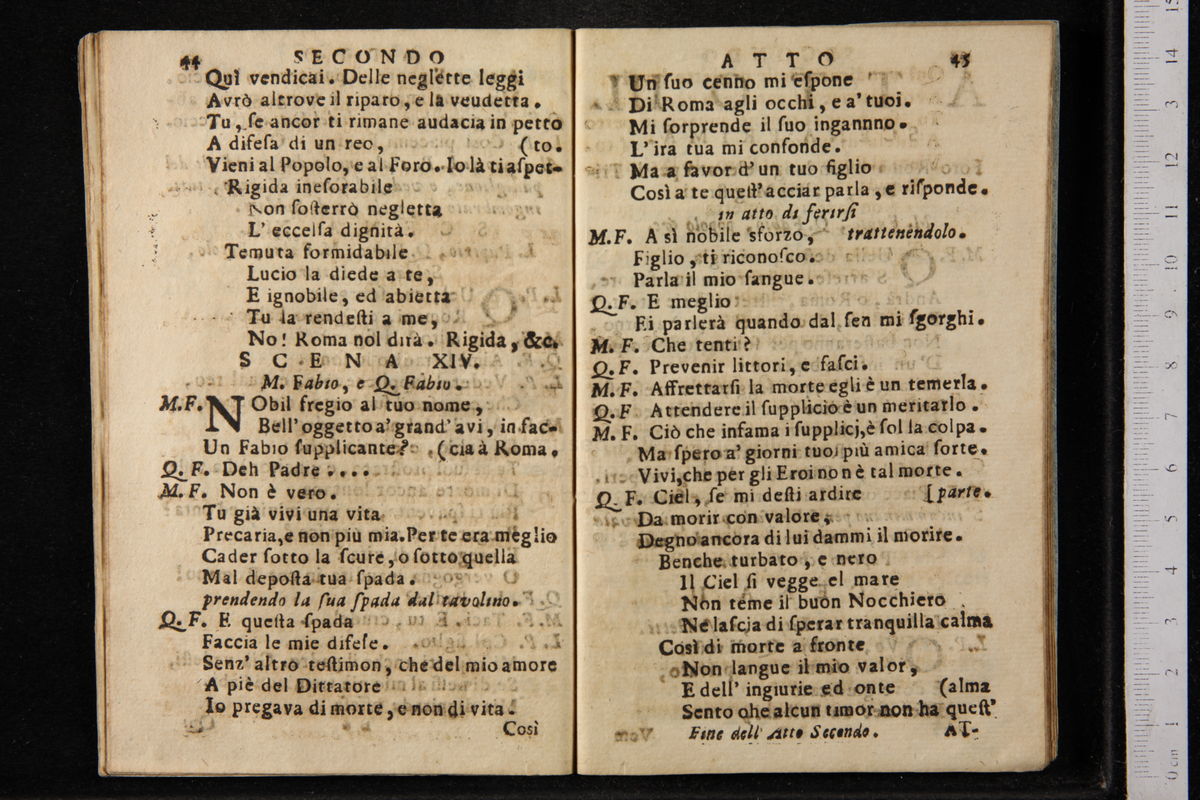 44 SECONDO
Qui vendicai. Delle neglette leggi
Avrò altrove il riparo, e la veudetta.
Tu, ſe ancor ti rimane audacia in petto
A difeſa di un reo, (to.
Vieni al Popolo, e al Foro. Io là ti aſpet-
Rigida ineſorabile
Non ſoſterrò negletta
L' eccelſa dignità.
Temuta formidabile
Lucio la diede a te,
E ignobile, ed abietta
Tu la rendeſti a me,
No! Roma nol dirà. Rigida, &c.
SCENA XIV.
M. Fabio, e Q. Fabio.
M.F. NObil fregio al tuo nome,
Bell' oggetto a' grand' avi, in fac-
Un Fabio ſupplicante? (cia à Roma.
Q. F. Deh Padre ....
M. F. Non è vero.
Tu già vivi una vita
Precaria, e non più mia. Per te era meglio
Cader ſotto la ſcure, o ſotto quella
Mal depoſta tua ſpada.
prendendo la ſua ſpada dal tavolino.
Q. F. E queſta ſpada
Faccia le mie difeſe.
Senz' altro teſtimon, che del mio amore
A piè del Dittatore
Io pregava di morte, e non di vita.
Così
ATTO 45
Un ſuo cenno mi eſpone
Di Roma agli occhi, e a' tuoi.
Mi ſorprende il ſuo ingannno.
L' ira tua mi confonde.
Ma a favor d' un tuo figlio
Così a te queſt' acciar parla, e riſponde.
in atto di ferirſi
M.F. A sì nobile sforzo, trattenendolo.
Figlio, ti riconoſco.
Parla il mio ſangue.
Q. F. E meglio
Ei parlerà quando dal ſen mi ſgorghi.
M. F. Che tenti?
Q. F. Prevenir littori, e faſci.
M. F. Affrettarſi la morte egli è un temerla.
Q. F Attendere il ſupplicio è un meritarlo.
M. F. Ciò che infama i ſupplicj, è ſol la colpa.
Ma ſpero a' giorni tuoi più amica ſorte.
Vivi, che per gli Eroi non è tal morte.
Q. F. Ciel, ſe mi deſti ardire [parte.
Da morir con valore,
Degno ancora di lui dammi il morire.
Benche turbato, e nero
Il Ciel ſi vegge el mare
Non teme il buon Nocchiero
Ne laſcja di ſperar tranquilla calma
Così di morte a fronte
Non langue il mio valor,
E dell' ingiurie ed onte (alma
Sento ohe alcun timor non ha queſt'
Fine dell' Atto Secondo. AT-
0 cm 1 2 3 4 5 6 7 8 9 10 11 12 13 14 15